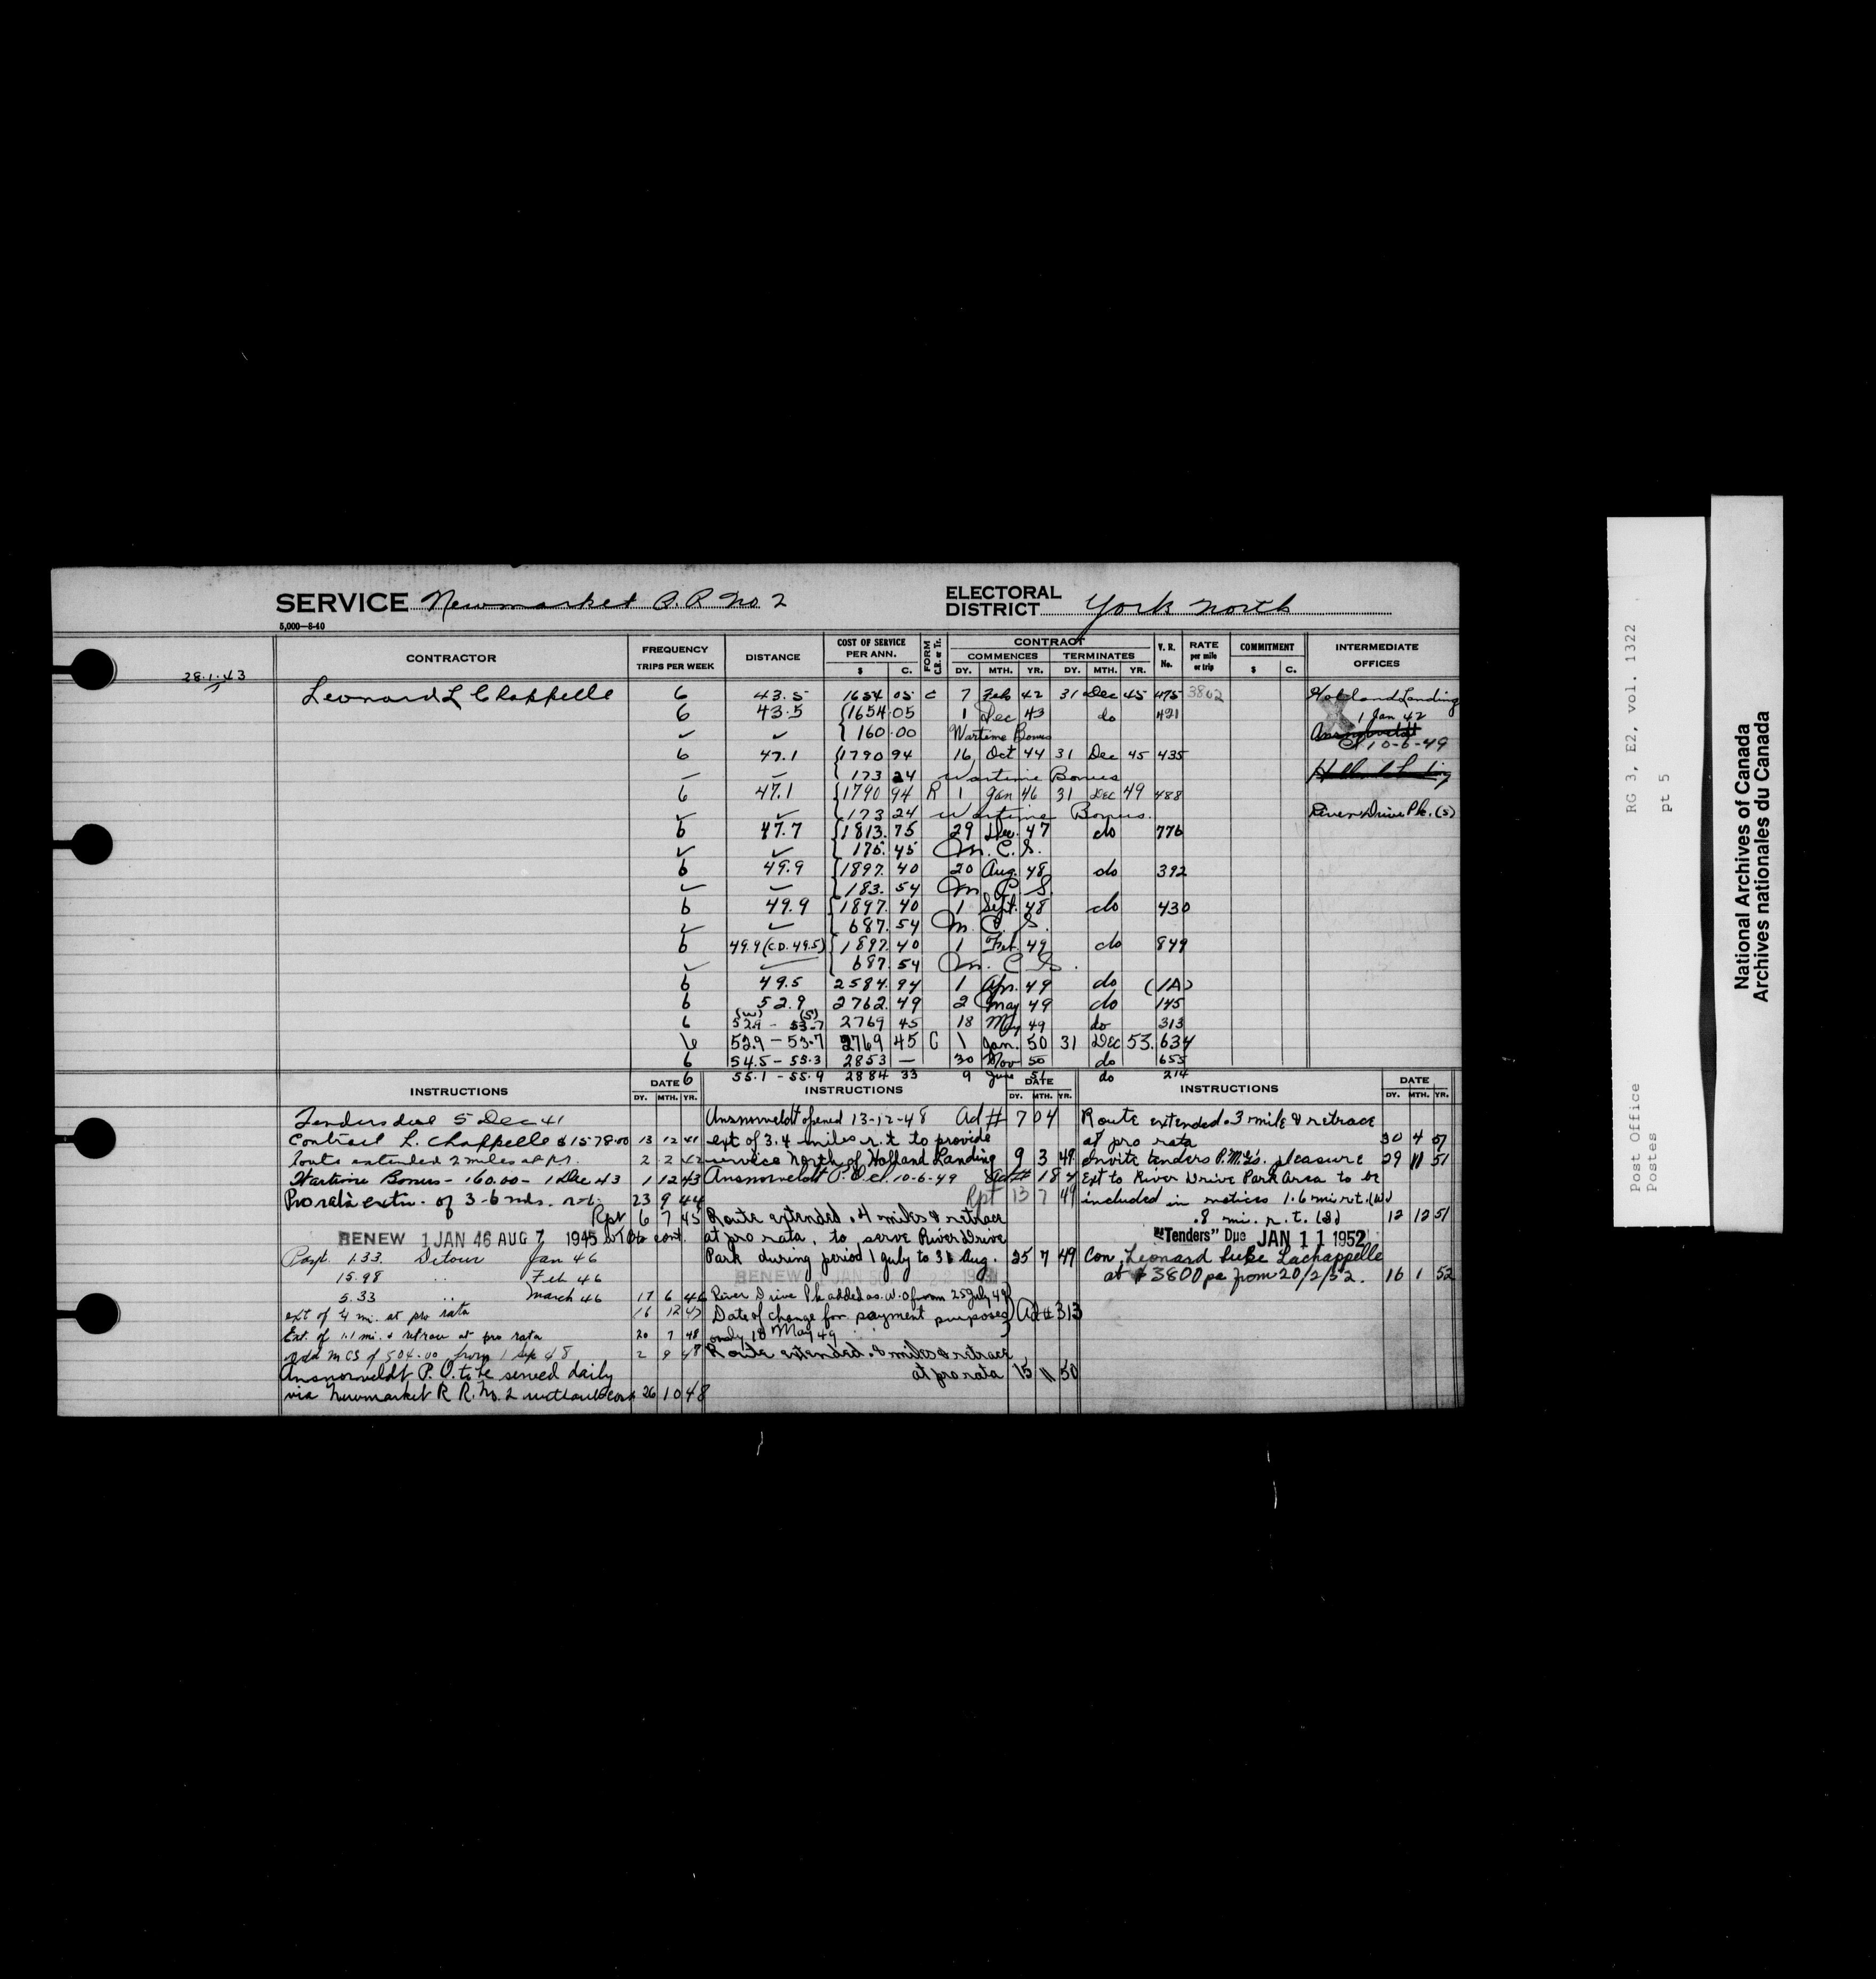 SERVICE Newmarket R.R. No 2 ELECTORAL DISTRICT York North
5,000—5-40
CONTRACTOR FREQUENCY TRIPS PER WEEK DISTANCE COST OF SERVICE PER ANN. $ C. FORM C.R. or Tr. CONTRACT COMMENCES DY. MTH. YR. TERMINATES DY. MTH. YR. V. R. No. RATE per mile or trip COMMITMENT $ C. INTERMEDIATE OFFICES
28.1.43
Leonard L Chappelle 6 43.5 1654 05 C 7 Feb 42 31 Dec 45 475 3802 Holland Landing
6 43.5 1654.05 1 Dec 43 do 421 1 Jan 42
✓ ✓ 160.00 Wartime Bonus
6 47.1 1790 94 16 Oct 44 31 Dec 45 435 Cl. 10-6-49
173 24 Wartime Bonus
6 47.1 1790 94 R 1 Jan 46 31 Dec 49 488
✓ ✓ 173 24 Wartime Bonus. River Drive Pk. (S)
6 47.7 1813.75 29 Dec. 47 do 776
✓ ✓ 175.45 M. C. S.
6 49.9 1897.40 20 Aug. 48 do 392
183.54 M. C. S.
6 49.9 1897.40 1 Sept. 48 do 430
✓ ✓ 687.54 M. C. S.
6 49.9 (C.D. 49.5) 1897.40 1 Feb. 49 do 849
✓ 687.54 M. C. S.
6 49.5 2584.94 1 Apr. 49 do (1A)
6 52.9 2762.49 2 May 49 do 145
6 (W) 52.9 - (S) 53.7 2769 45 18 May 49 do 313
6 52.9 - 53.7 2769 45 C 1 Jan. 50 31 Dec 53. 634
6 54.5 - 55.3 2853 — 30 Nov 50 do 655
6 55.1 - 55.9 2884 33 9 June 51 do 214
INSTRUCTIONS DATE DY. MTH. YR. INSTRUCTIONS DATE DY. MTH. YR. INSTRUCTIONS DATE DY. MTH. YR.
Tenders due 5 Dec 41
Contract L. Chappelle $1578.00 13 12 41
Route extended 2 miles at p.r. 2 2 42
Wartime Bonus - 160.00 - 1 Dec 43 1 12 43
Pro rata extn. of 3.6 mls. r.t. 23 9 44
Rpt 6 7 45
RENEW 1 JAN 46 AUG 7 1945
1.33. Detour Jan 46
15.98 " Feb 46
5.33 " March 46 17 6 46
ext of 4 mi. at pro rata 16 12 47
Ext. of 1.1 mi. & retrace at pro rata 20 7 48
add MCS of 504.00 from 1 Sep 48 2 9 48
Ansnorveldt P. O. to be served daily
via Newmarket R R. No. 2 without cost 26 10 48
Ansnorveldt opened 13-12-48 Ad # 704
ext of 3.4 miles r.t. to provide
service North of Holland Landing 9 3 49
Ansnorveldt P.O. cl. 10-6-49 Ad # 187
Rpt 13 7 49
Route extended .4 miles & retrace
at pro rata, to serve River Drive
Park during period 1 July to 31 Aug. 25 7 49
RENEW JAN 50
River Drive Pk added as W.O from 25 July 49
Date of change for payment purposes Ad # 313
only 18 May 49
Route extended .8 miles & retrace
at pro rata 15 11 50
Route extended .3 mile & retrace
at pro rata 30 4 51
Invite tenders P.M.G's. pleasure 29 11 51
Ext to River Drive Park Area to be
included in notices 1.6 mi r.t. (W)
.8 mi. r.t. (S) 12 12 51
"Tenders" Due JAN 11 1952
Con. Leonard Luke Lachappelle
at $3800 pa from 20/2/52. 16 1 52
Post Office RG 3, E2, vol. 1322
Postes pt 5
National Archives of Canada
Archives nationales du Canada